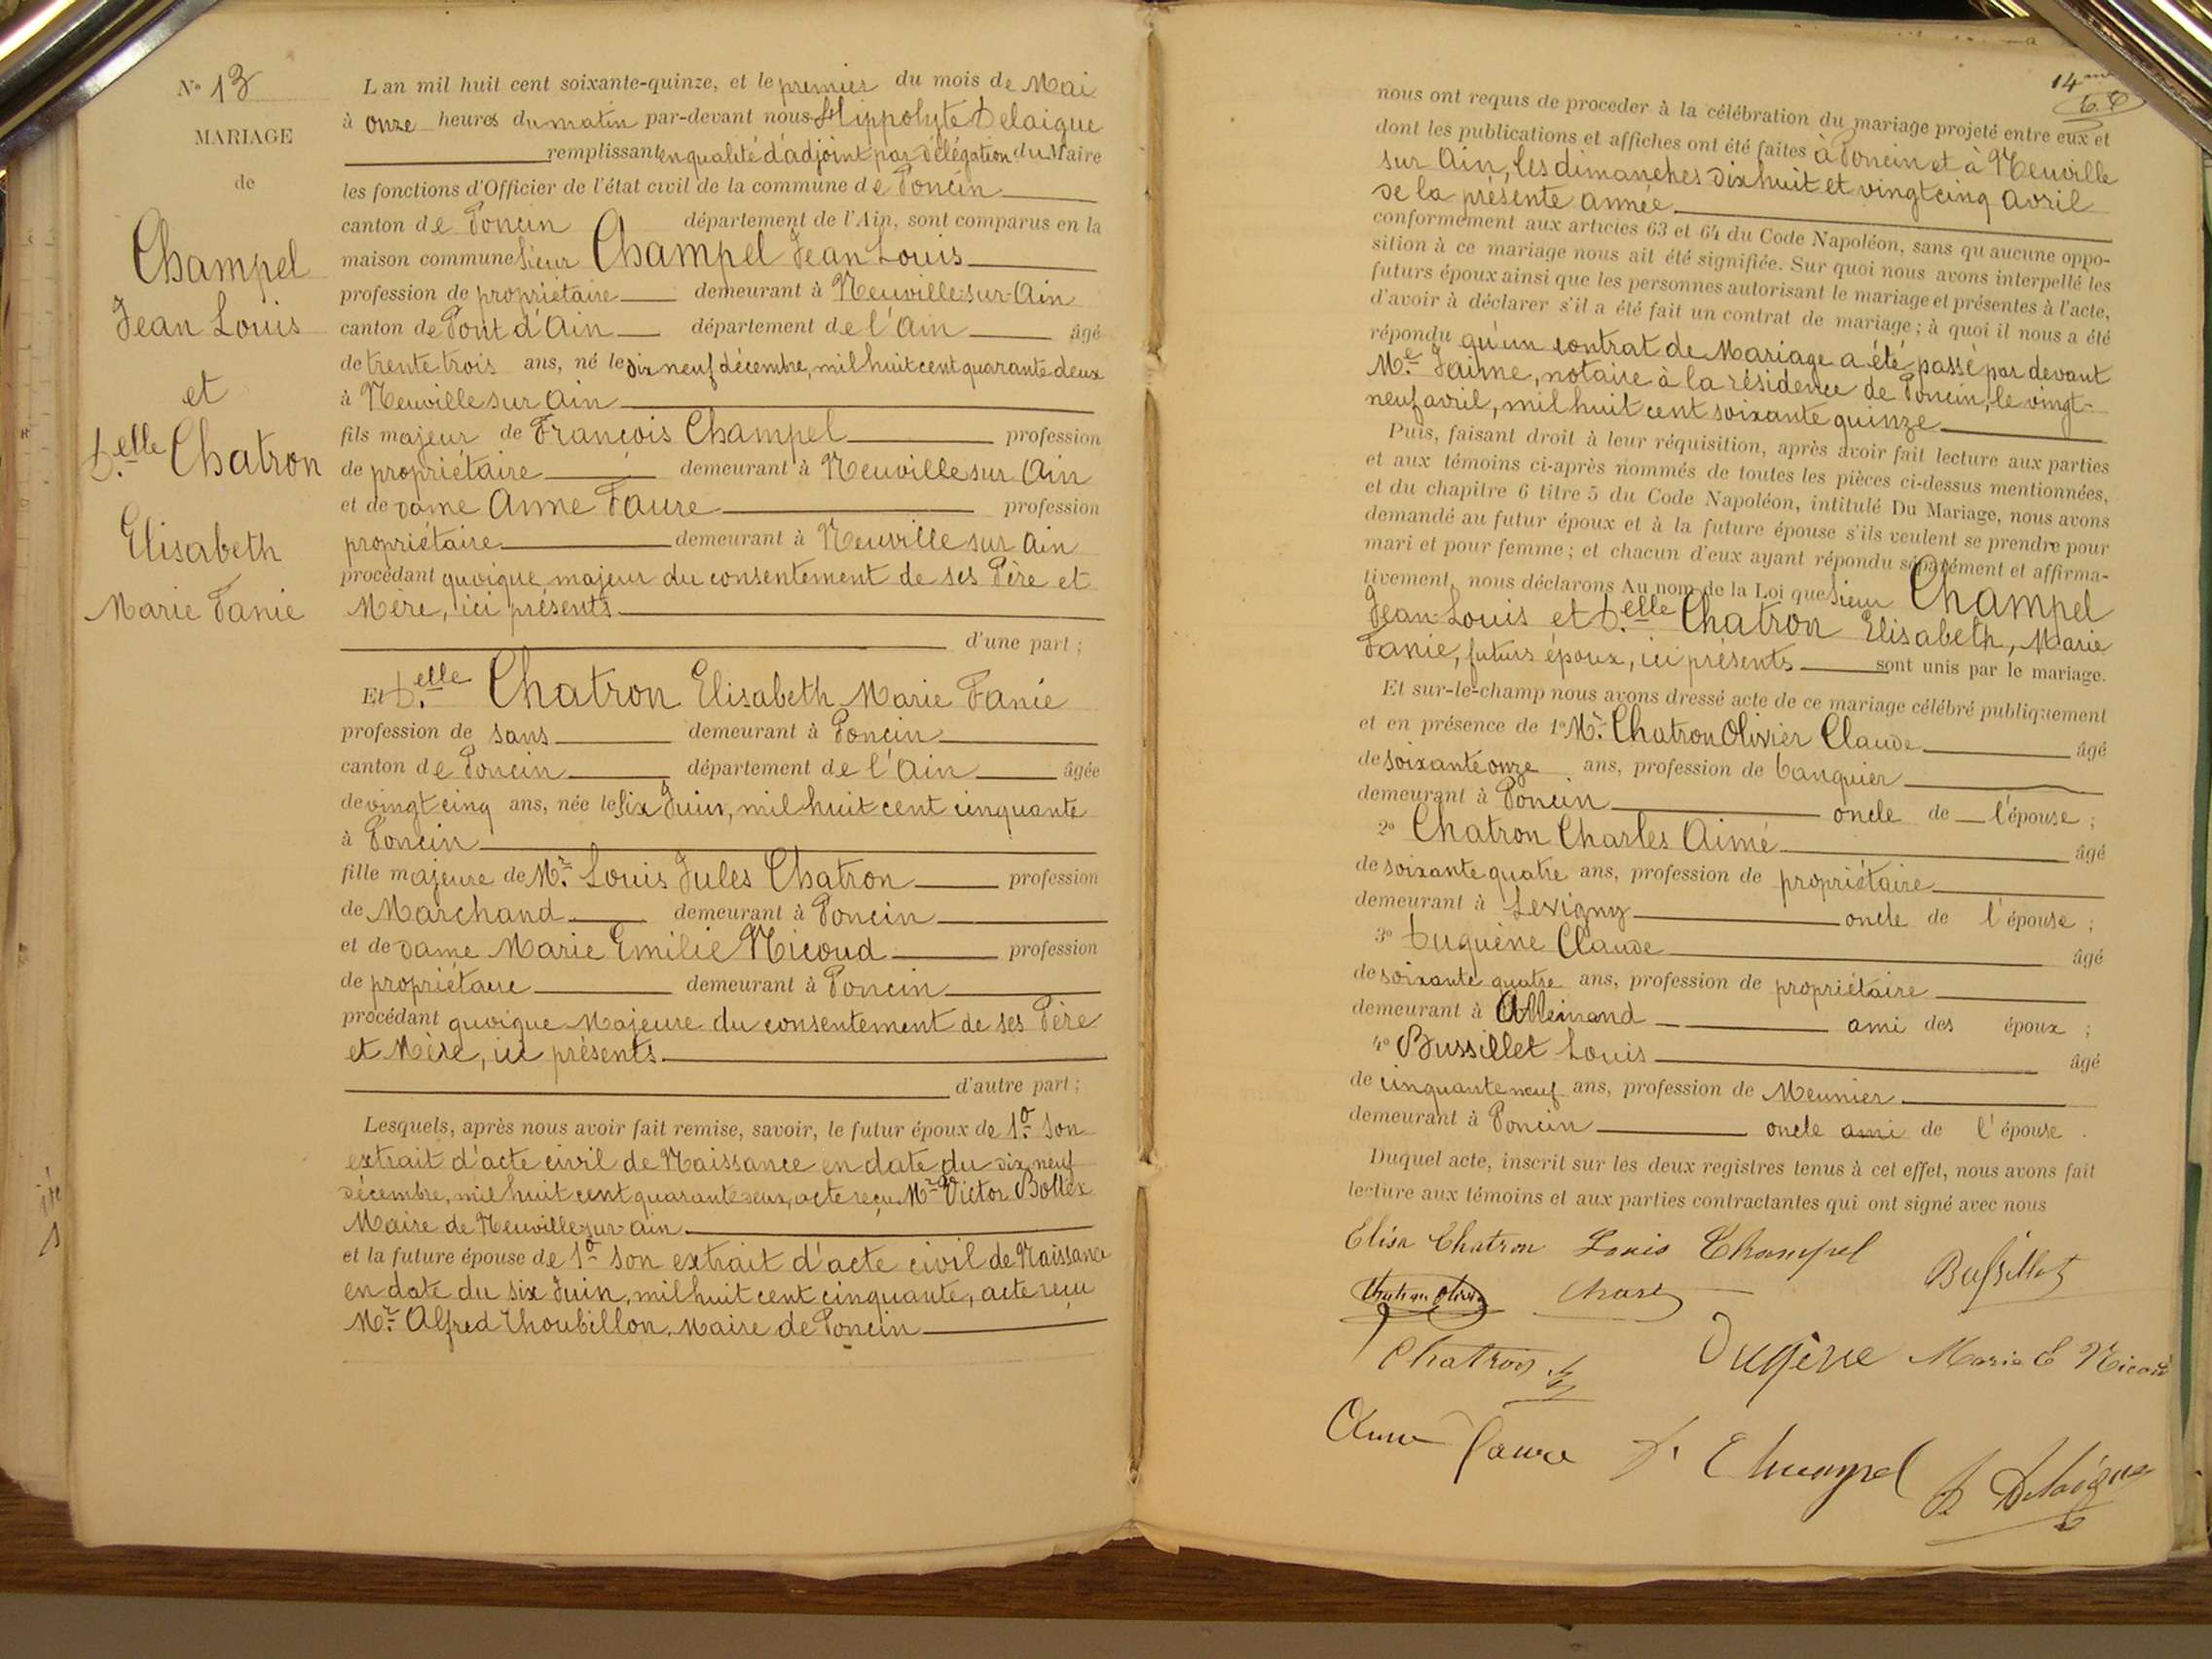 No 13
MARIAGE
de
Champel
Jean Louis
et
D.elle Chatron
Elisabeth
Marie Fanie
L an mil huit cent soixante-quinze, et le premier du mois de Mai
à onze heures du matin par-devant nous Hippolyte Delaigue
remplissant en qualité d'adjoint par délégation du Maire
les fonctions d'Officier de l'état civil de la commune de Poncin
canton de Poncin département de l'Ain, sont comparus en la
maison commune Sieur Champel Jean Louis
profession de propriétaire demeurant à Neuville-sur-Ain
canton de Pont d'Ain département de l'Ain âgé
de trente trois ans, né le dix neuf décembre, mil huit cent quarante deux
à Neuville sur Ain
fils majeur de François Champel profession
de propriétaire demeurant à Neuville sur Ain
et de Dame Anne Faure profession
propriétaire demeurant à Neuville sur Ain
procédant quoique majeur du consentement de ses Père et
Mère, ici présents
d'une part ;
Et D.elle Chatron Elisabeth Marie Fanie
profession de sans demeurant à Poncin
canton de Poncin département de l'Ain âgée
de vingt cinq ans, née le six Juin, mil huit cent cinquante
à Poncin
fille majeure de Mr. Louis Jules Chatron profession
de Marchand demeurant à Poncin
et de Dame Marie Emilie Nicoud profession
de propriétaire demeurant à Poncin
procédant quoique Majeure du consentement de ses Père
et Mère, ici présents
d'autre part ;
Lesquels, après nous avoir fait remise, savoir, le futur époux de 1o. Son
extrait d'acte civil de Naissance en date du dix neuf
décembre, mil huit cent quarante deux, acte reçu Mr. Victor Bollex
Maire de Neuville-sur-Ain
et la future épouse de 1o Son extrait d'acte civil de Naissance
en date du six Juin, mil huit cent cinquante, acte reçu
Mr. Alfred Thoubillon, Maire de Poncin
14me
nous ont requis de proceder à la célébration du mariage projeté entre eux et
dont les publications et affiches ont été faites à Poncin et à Neuville
sur Ain, les dimanches dix huit et vingt cinq Avril
de la présente année
conformement aux articles 63 et 64 du Code Napoléon, sans qu aucune oppo-
sition à ce mariage nous ait été signifiée. Sur quoi nous avons interpellé les
futurs époux ainsi que les personnes autorisant le mariage et présentes à l'acte,
d'avoir à déclarer s'il a été fait un contrat de mariage ; à quoi il nous a été
répondu qu'un contrat de Mariage a été passé par devant
Me. Jaime, notaire à la résidence de Poncin, le vingt-
neuf avril, mil huit cent soixante quinze
Puis, faisant droit à leur réquisition, après avoir fait lecture aux parties
et aux témoins ci-après nommés de toutes les pièces ci-dessus mentionnées,
et du chapitre 6 titre 5 du Code Napoléon, intitulé Du Mariage, nous avons
demandé au futur époux et à la future épouse s'ils veulent se prendre pour
mari et pour femme ; et chacun d'eux ayant répondu séparément et affirma-
tivement, nous déclarons Au nom de la Loi que Sieur Champel
Jean-Louis et D.elle Chatron Elisabeth, Marie
Fanie, futurs époux, ici présents sont unis par le mariage.
Et sur-le-champ nous avons dressé acte de ce mariage célébré publiquement
et en présence de 1o Mr. Chatron Olivier Claude âgé
de soixante onze ans, profession de banquier
demeurant à Poncin oncle de l'épouse ;
2o Chatron Charles Aimé âgé
de soixante quatre ans, profession de propriétaire
demeurant à Levigny oncle de l'épouse ;
3o Duguène Claude âgé
de soixante quatre ans, profession de propriétaire
demeurant à Allemand ami des époux ;
4o Bussillet Louis âgé
de cinquante neuf ans, profession de Meunier
demeurant à Poncin oncle ami de l'épouse.
Duquel acte, inscrit sur les deux registres tenus à cet effet, nous avons fait
lecture aux témoins et aux parties contractantes qui ont signé avec nous
Elisa Chatron Louis Champel Bussillet
Chatron Olivier
Chatron Dugène Marie E Nicoud
Anne Faure F. Champel H Delaigue